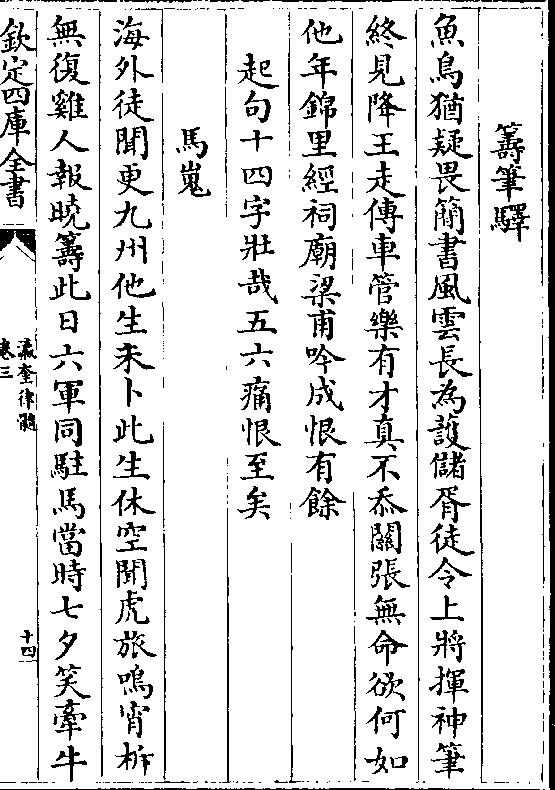 籌筆驛
魚鳥猶疑畏簡書風雲長為護儲胥徒令上將揮神筆
終見降王走傳車管樂有才真不忝關張無命欲何如
他年錦里經祠廟梁甫吟成恨有餘
起句十四字壯哉五六痛恨至矣
馬嵬
海外徒聞更九州他生未卜此生休空聞虎旅鳴宵柝
無復雞人報曉籌此日六軍同駐馬當時七夕笑牽牛
欽定四庫全書
瀛奎律髓
卷三
十四